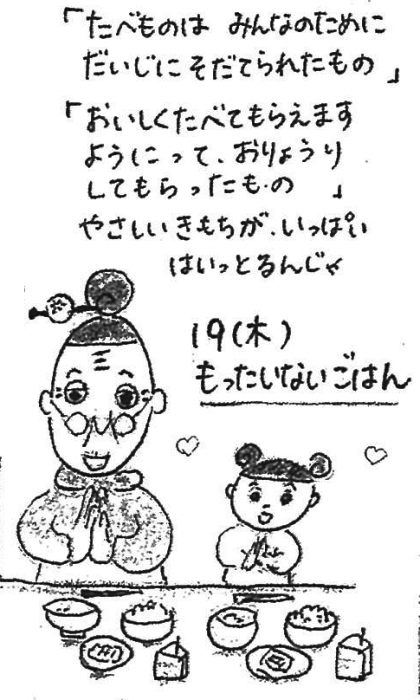 「たべものは みんなのために
だいじにそだてられたもの 」
「おいしくたべてもらえます
ようにって、おりょうり
してもらったもの 」
やさしいきもちが、いっぱい
はいっとるんじゃ
19(木)
もったいないごはん